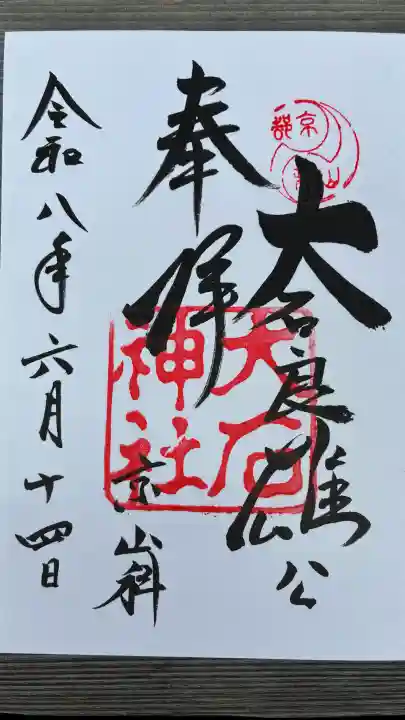 奉拝
大石良雄公
京山科
令和八年六月十四日
大石神社
京都
山科